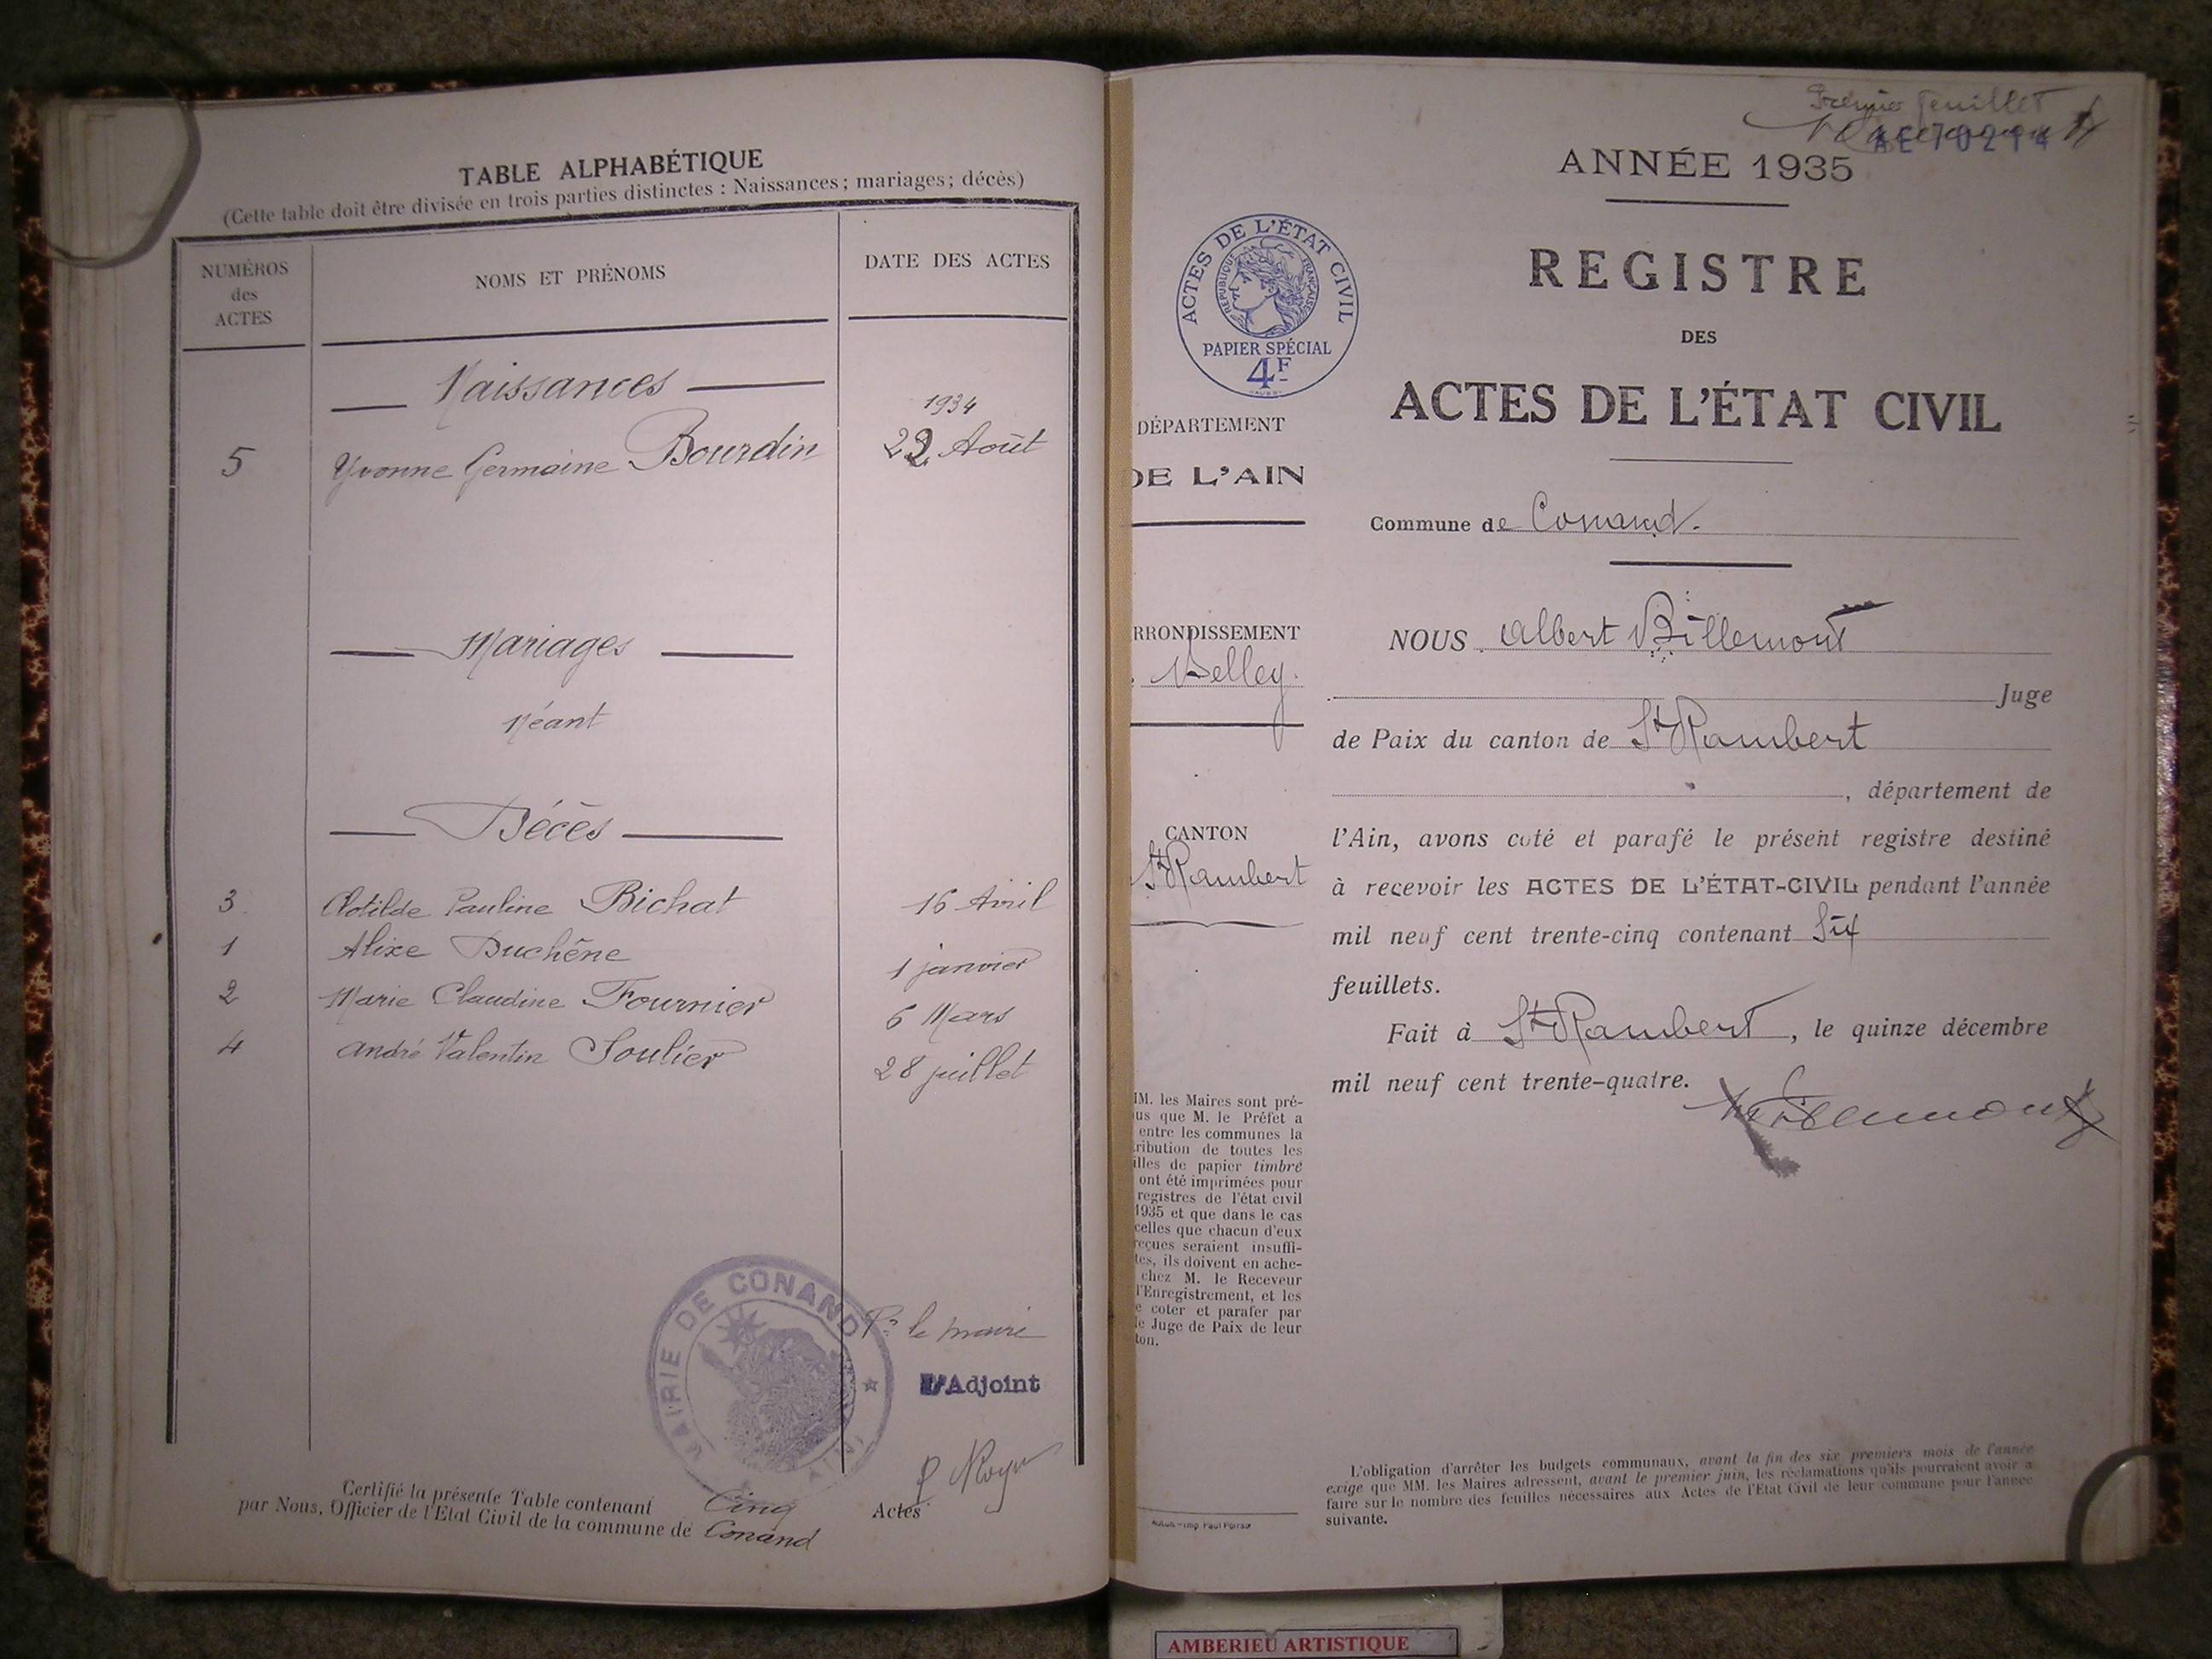 TABLE ALPHABÉTIQUE
(Cette table doit être divisée en trois parties distinctes : Naissances ; mariages ; décès)
NUMÉROS
des
ACTES
NOMS ET PRÉNOMS
DATE DES ACTES
Naissances
1934
5 Yvonne Germaine Bourdin 22 Août
Mariages
Néant
Décès
3 Clotilde Pauline Bichat 16 Avril
1 Alixe Duchêne 1 janvier
2 Marie Claudine Fournier 6 Mars
4 André Valentin Soulier 28 juillet
MAIRIE DE CONAND
AIN
Pr le maire
L'Adjoint
Certifié la présente Table contenant Cinq Actes
par Nous, Officier de l'Etat Civil de la commune de Conand
Premier feuillet
AE 70214
ANNÉE 1935
REGISTRE
DES
ACTES DE L'ÉTAT CIVIL
ACTES DE L'ÉTAT CIVIL
RÉPUBLIQUE FRANÇAISE
PAPIER SPÉCIAL
4F
DÉPARTEMENT
DE L'AIN
RRONDISSEMENT
Belley.
CANTON
St Rambert
IM. les Maires sont pré-
us que M. le Préfet a
entre les communes la
ribution de toutes les
illes de papier timbré
ont été imprimées pour
registres de l'état civil
1935 et que dans le cas
celles que chacun d'eux
reçues seraient insuffi-
tes, ils doivent en ache-
chez M. le Receveur
l'Enregistrement, et les
e coter et parafer par
le Juge de Paix de leur
ton.
Commune de Conand.
NOUS Albert Billemont
Juge
de Paix du canton de St Rambert
, département de
l'Ain, avons coté et parafé le présent registre destiné
à recevoir les ACTES DE L'ÉTAT-CIVIL pendant l'année
mil neuf cent trente-cinq contenant Six
feuillets.
Fait à St Rambert, le quinze décembre
mil neuf cent trente-quatre.
Billemont
L'obligation d'arrêter les budgets communaux, avant la fin des six premiers mois de l'année
exige que MM. les Maires adressent, avant le premier juin, les réclamations qu'ils pourraient avoir à
faire sur le nombre des feuilles nécessaires aux Actes de l'Etat Civil de leur commune pour l'année
suivante.
AMBERIEU ARTISTIQUE